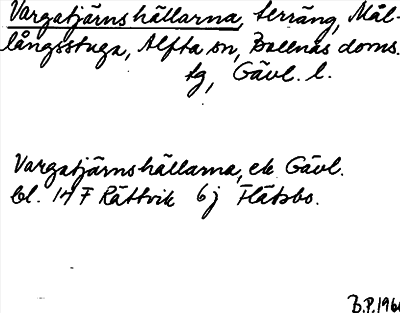 Vargatjärnshällarna, terräng, Mål-
långsstuga, Alfta sn, Bollnäs doms.
tg, Gävl. l.
Vargatjärnshällarna, ek Gävl.
bl. 14 F Rättvik 6j Flätsbo.
B.P. 196